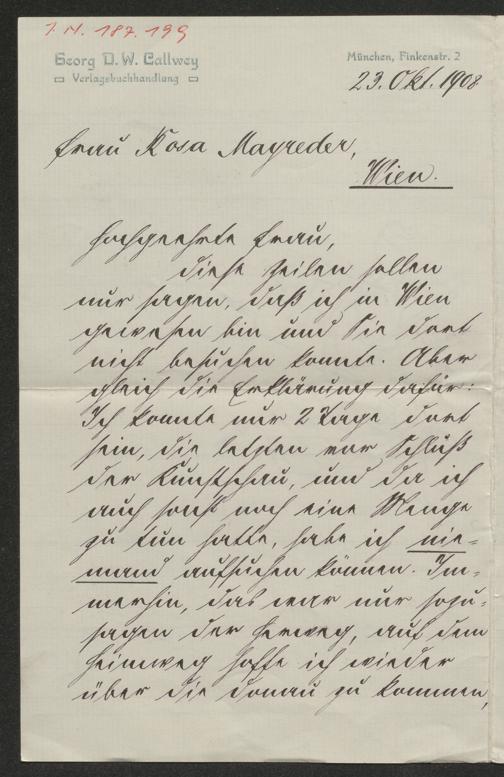 I.N. 187.199
Georg D. W. Callwey
Verlagsbuchhandlung
München, Finkenstr. 2
23. Okt. 1908
Frau Rosa Mayreder,
Wien.
Hochgeehrte Frau,
diese Zeilen sollen
nur sagen, daß ich in Wien
gewesen bin und Sie dort
nicht besuchen konnte. Aber
gleich die Erklärung dafür:
Ich konnte nur 2 Tage dort
sein, die letzten vor Schluß
der Kunstschau, und da ich
auch sonst noch eine Menge
zu tun hatte, habe ich nie-
mand aufsuchen können. Im-
merhin, das war nur sozu-
sagen der Herweg, auf dem
Heimweg hoffe ich wieder
über die Donau zu kommen,